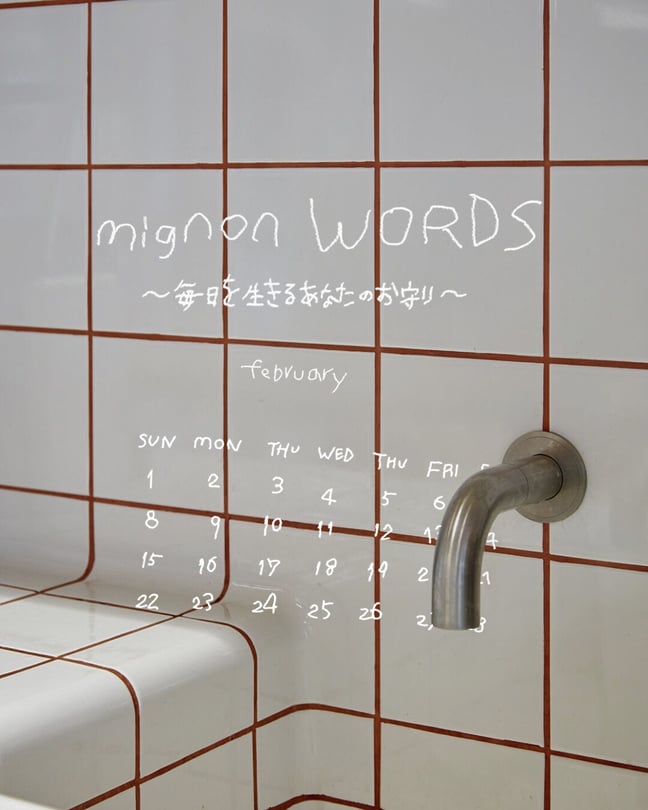 mignon WORDS
〜毎日を生きるあなたのお守り〜
february
SUN MON THU WED THU FRI
1 2 3 4 5 6
8 9 10 11 12
15 16 17 18 19
22 23 24 25 26